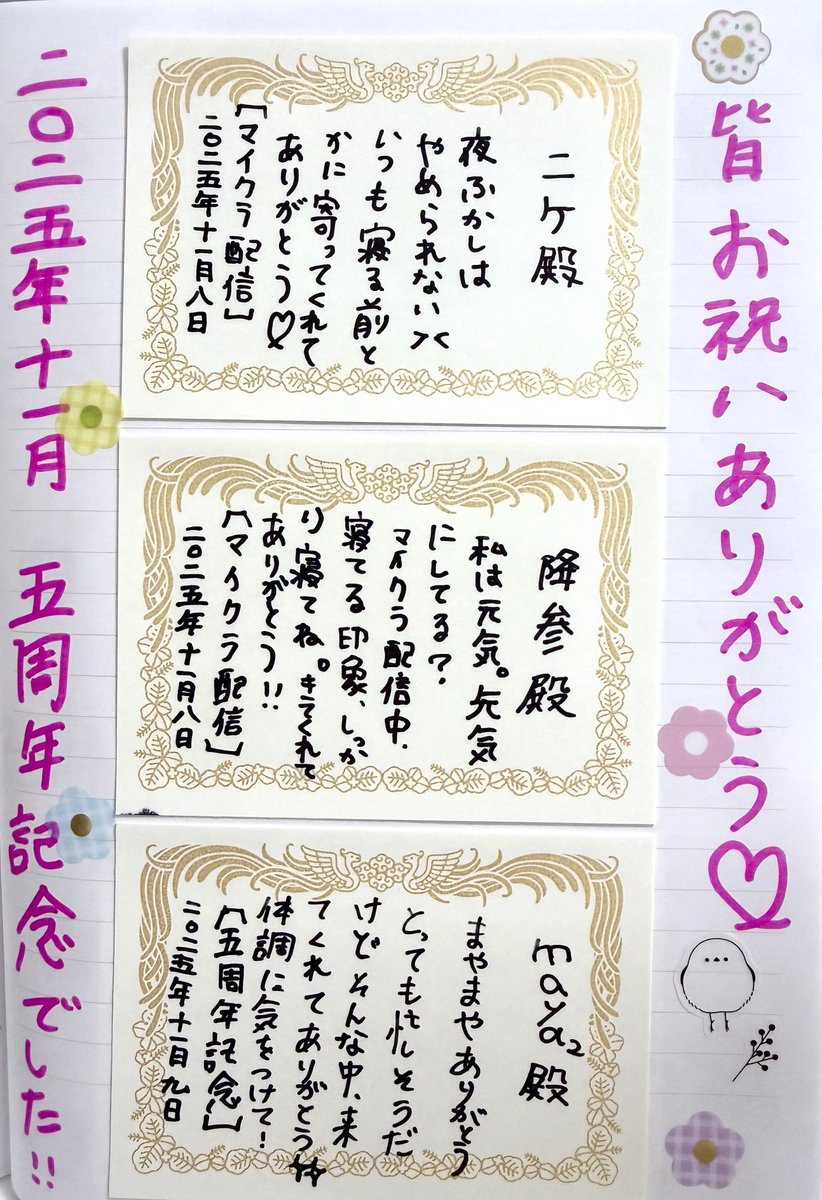 皆お祝いありがとう♡
ニケ殿
夜ふかしは
やめられない><
いつも寝る前と
かに寄ってくれて
ありがとう♡
「マイクラ配信」
二〇二五年十一月八日
降参殿
私は元気。元気
にしてる?
マイクラ配信中、
寝てる印象、しっか
り寝てね。きてくれて
ありがとう!!
「マイクラ配信」
二〇二五年十一月八日
maya2殿
まやまやありがとう
とっても忙しそうだ
けどそんな中、来
てくれてありがとう
体調に気をつけて!
「五周年記念」
二〇二五年十一月九日
二〇二五年十一月 五周年記念でした!!